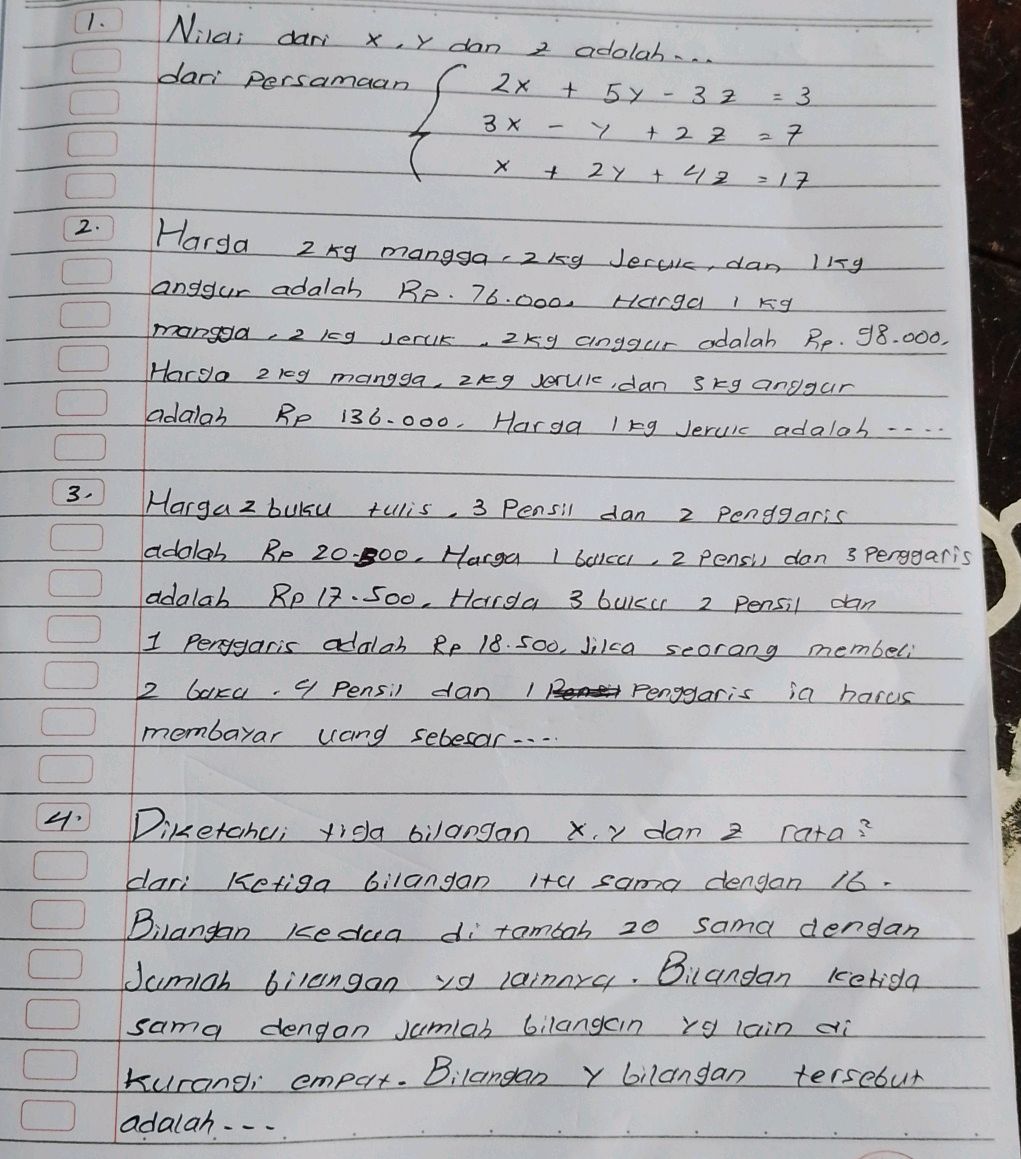 1. Nilai dari x, y dan z adalah...
dari Persamaan { 2x + 5y - 3z = 3
3x - y + 2z = 7
x + 2y + 4z = 17
2. Harga 2 kg mangga, 2 kg Jeruk, dan 1 kg
anggur adalah Rp. 76.000. Harga 1 kg
mangga, 2 kg Jeruk, 2 kg anggur adalah Rp. 98.000.
Harga 2 kg mangga, 2 kg Jeruk, dan 3 kg anggur
adalah Rp 136.000. Harga 1 kg Jeruk adalah ....
3. Harga 2 buku tulis, 3 Pensil dan 2 Penggaris
adalah Rp 20.500. Harga 1 buku, 2 Pensil dan 3 Penggaris
adalah Rp 17.500. Harga 3 buku 2 Pensil dan
1 Penggaris adalah Rp 18.500. Jika seorang membeli
2 buku, 4 Pensil dan 1 Penggaris ia harus
membayar uang sebesar....
4. Diketahui tiga bilangan x, y dan z rata²
dari Ketiga bilangan itu sama dengan 16.
Bilangan Kedua di tambah 20 sama dengan
Jumlah bilangan yg lainnya. Bilangan Ketiga
sama dengan Jumlah bilangan yg lain di
Kurangi empat. Bilangan Y bilangan tersebut
adalah...